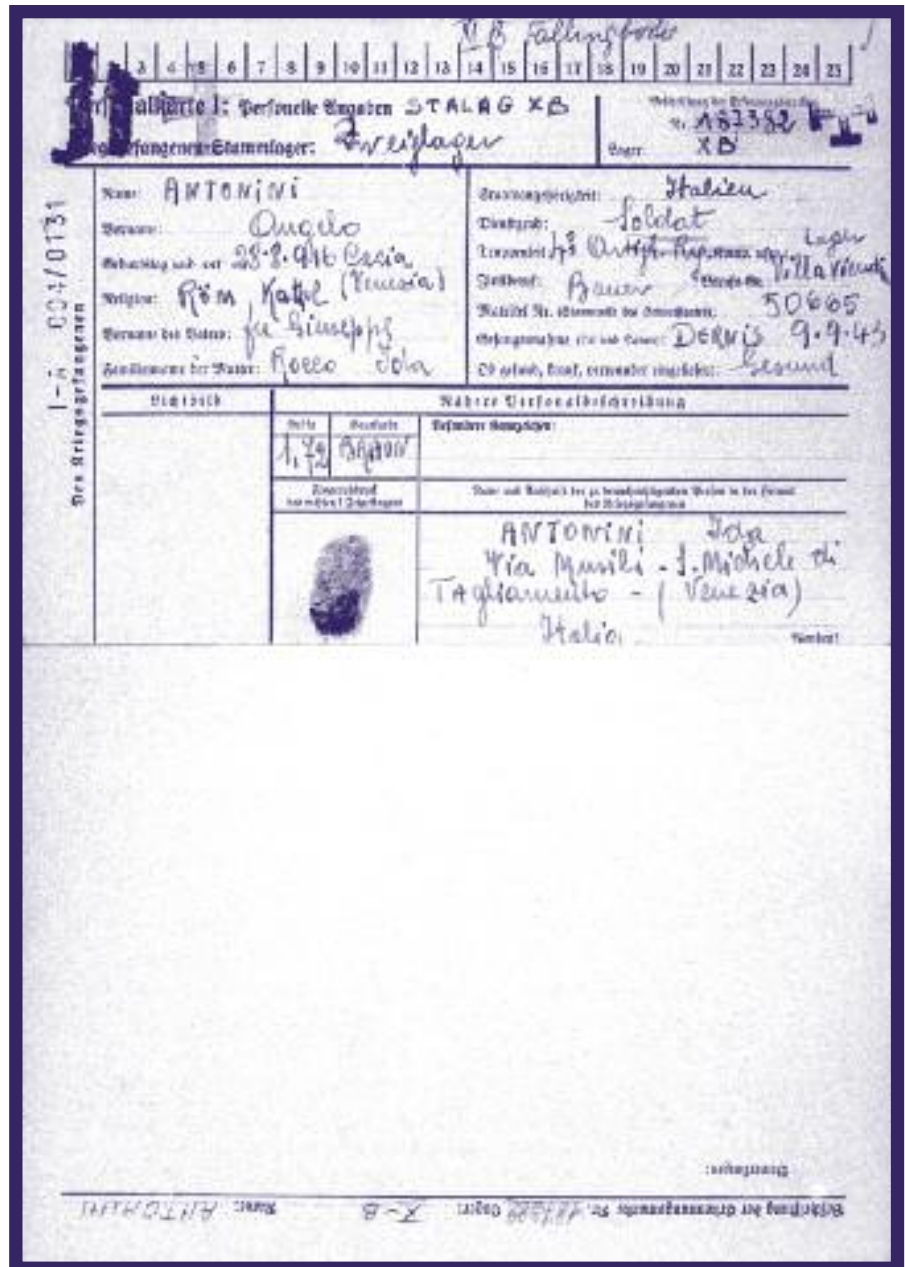 XI B Fallingbostel
3 4 5 6 7 8 9 10 11 12 13 14 15 16 17 18 19 20 21 22 23 24 25
Personalkarte I: Personelle Angaben STALAG XB
Kriegsgefangenen-Stammlager: Zweiglager
Beschriftung der Erkennungsmarke
Nr. 187382
Lager: XB
I-A 004/0131
Des Kriegsgefangenen
Name: ANTONINI
Vorname: Angelo
Geburtstag und -ort 28-8-916 Cesia
Religion: Röm, Kathol (Venezia)
Vorname des Vaters: fu Giuseppe
Familienname der Mutter: Rocco Ida
Staatsangehörigkeit: Italien
Dienstgrad: Soldat
Truppenteil: Artigl. Lager
Zivilberuf: Bauer
Matrikel Nr. 50665
Gefangennahme (Ort und Datum): DERNIS 9-9-43
Ob gesund, krank, verwundet eingeliefert: Gesund
Lichtbild
Nähere Personalbeschreibung
Größe Haarfarbe Besondere Kennzeichen:
1,72 BRAUN
Fingerabdruck
Name und Anschrift der zu benachrichtigenden Person in der Heimat
des Kriegsgefangenen
ANTONINI Ida
Via Musili - S. Michele di
TAgliamento - (Venezia)
Italia
Wenden!
Bemerkungen:
Beschriftung der Erkennungsmarke Nr. Lager: X-B Name: ANTONINI